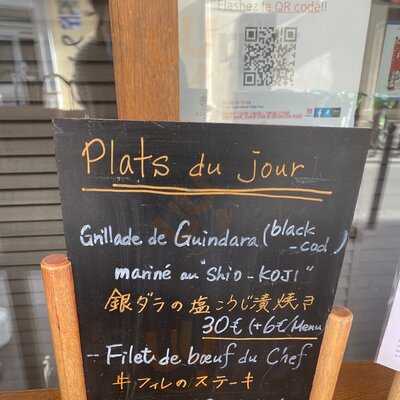 Flashez le QR code!!
Plats du jour
Grillade de Guindara (black
-cod)
mariné au "Shio-KOJI"
銀ダラの塩こうじ漬焼き
30€ (+6€/Menu
-- Filet de bœuf du Chef
牛フィレのステーキ